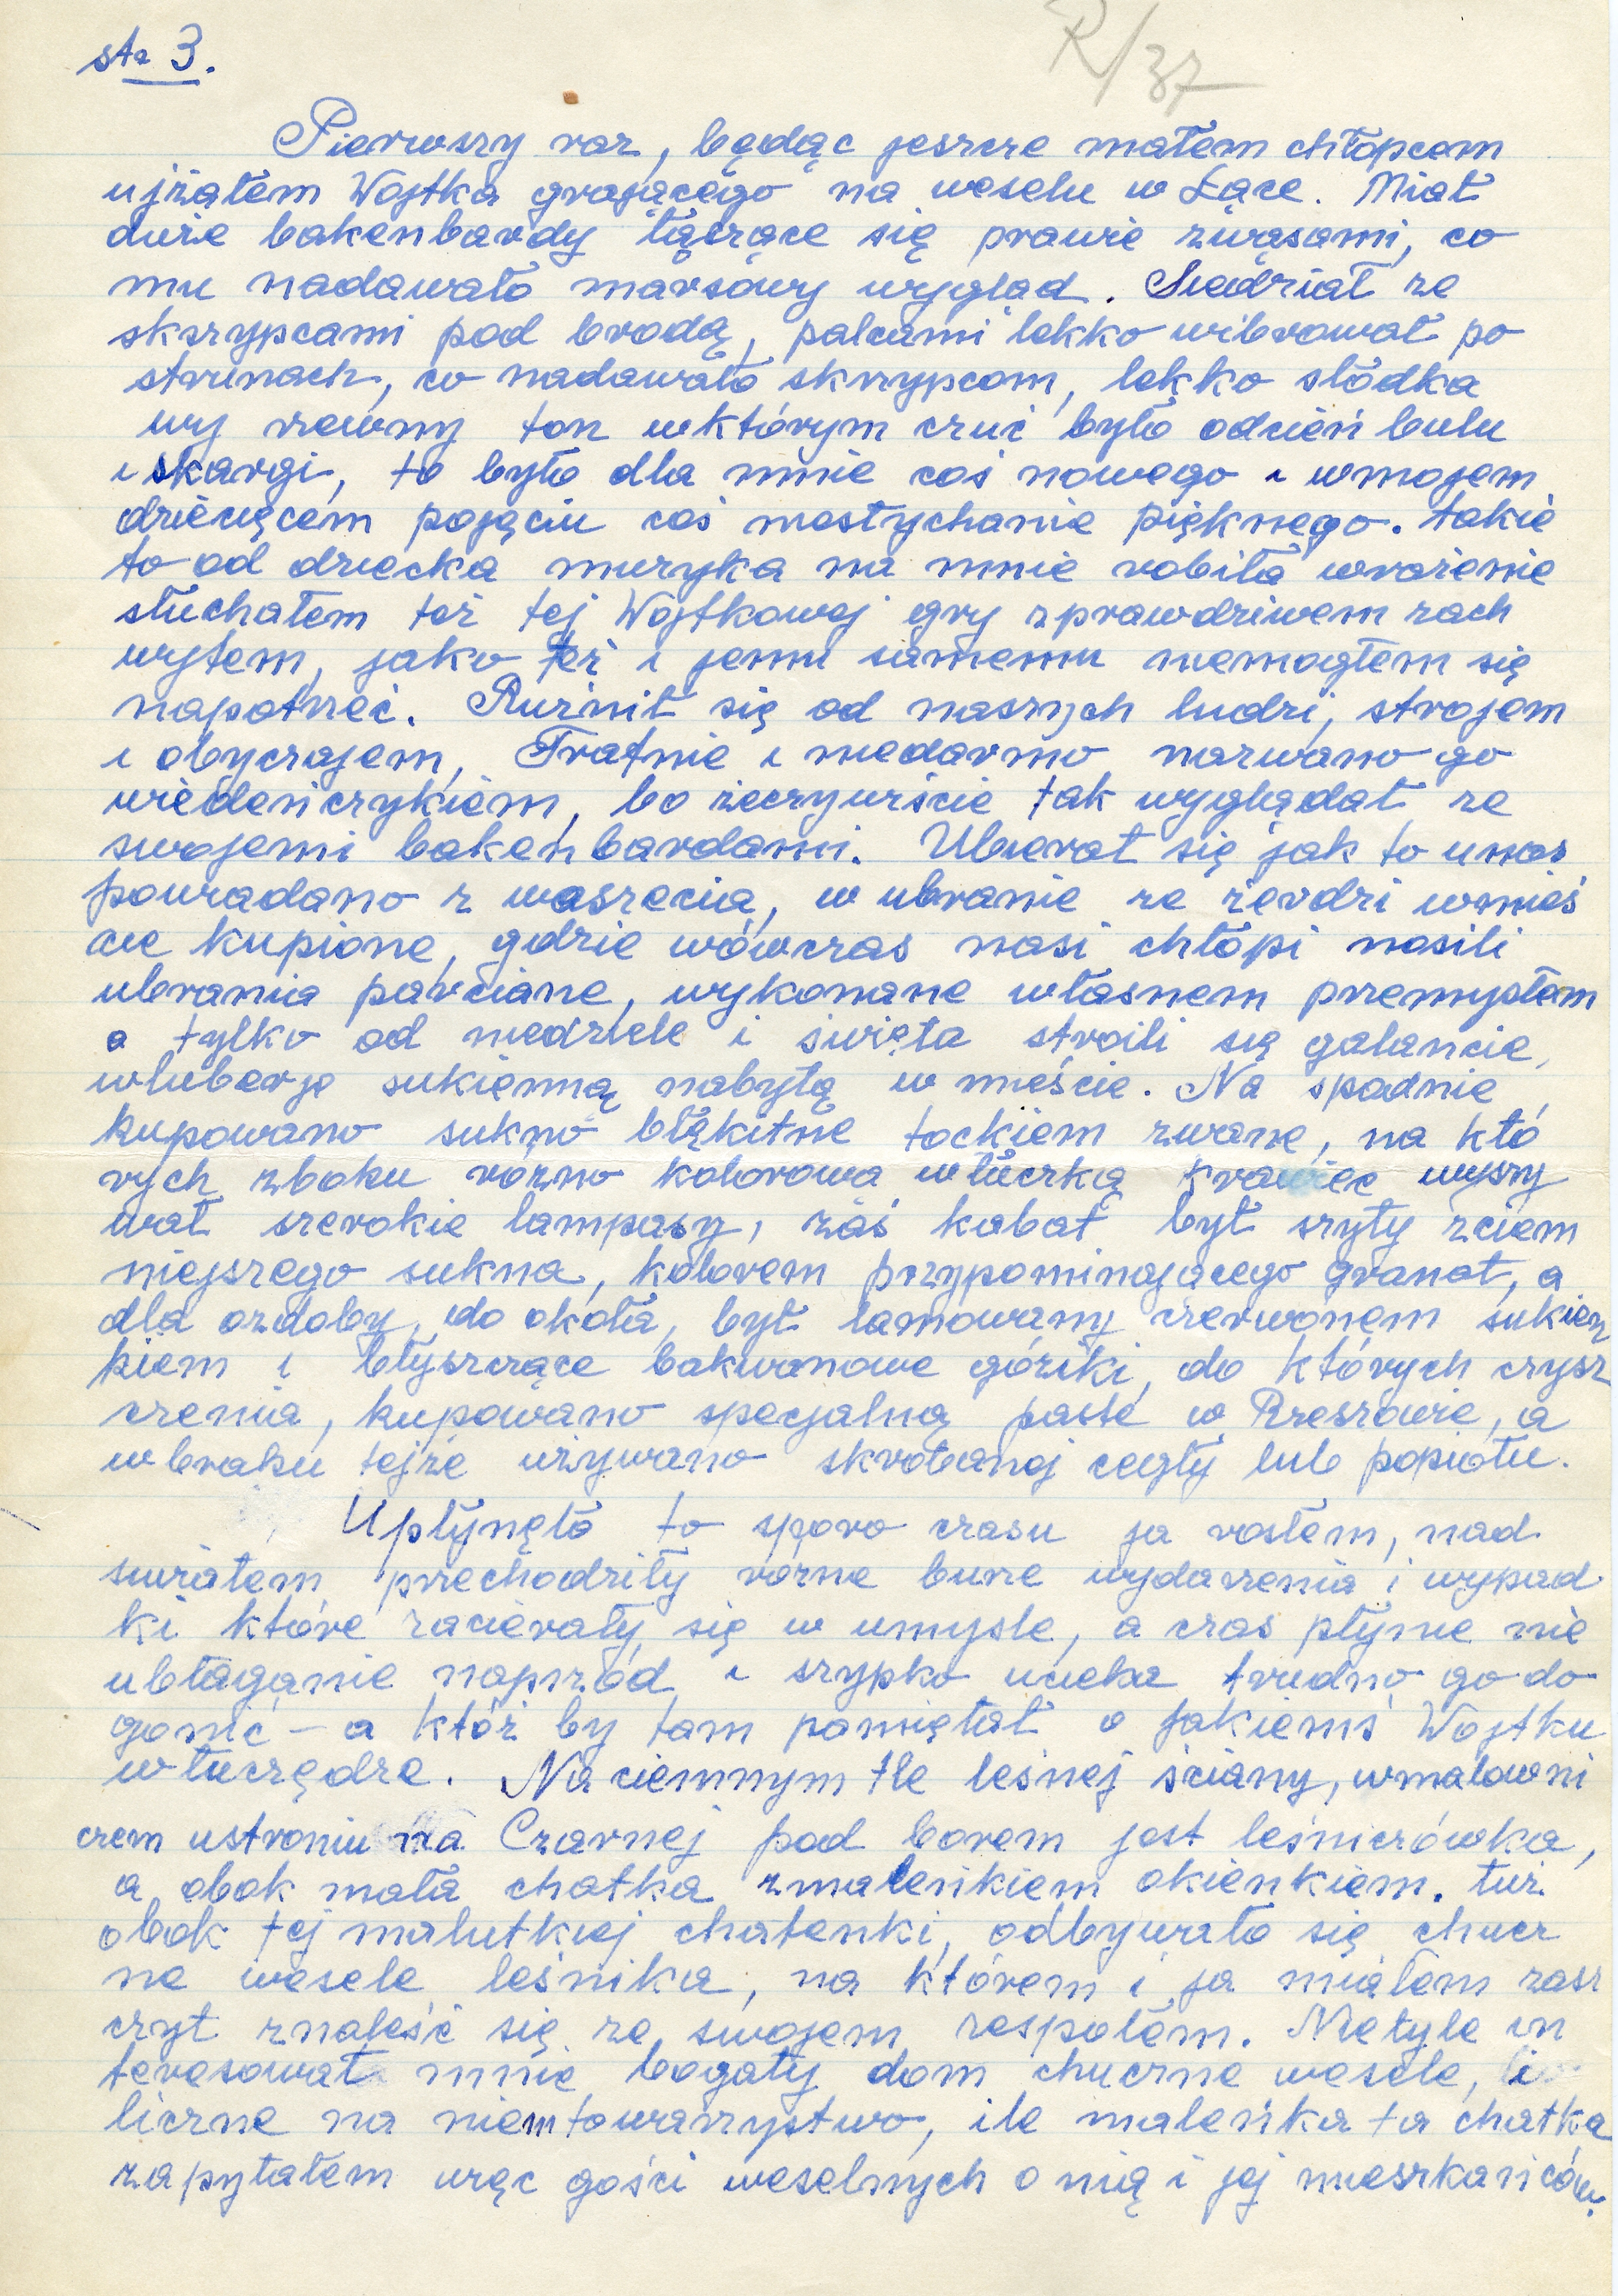 str 3.
R/37
Pierwszy raz, będąc jeszcze małem chłopcem
ujżałem Wojtka grającego na weselu w Łące. Miał
duże bakenbardy łączące się prawie zwąsami, co
mu nadawało marsowy wygląd. Siedział ze
skrzypcami pod brodą, palcami lekko wibrował po
strunach, co nadawało skrzypcom, lekko słodka
wy rzewny ton wktórym czuć było odcień bulu
i skargi, to było dla mnie coś nowego i wmojem
dziecięcem pojęciu coś niesłychanie pięknego. takie
to od dziecka muzyka na mnie robiła wrażenie
słuchałem też tej Wojtkowej gry zprawdziwem zach
wytem, jako też i jemu samemu niemogłem się
napatrzeć. Rużnił się od naszych ludzi, strojem
i obyczajem, Trafnie i niedarmo nazwano go
wiedeńczykiem, bo żeczywiście tak wyglądał ze
swojemi bakenbardami. Ubierał się jak to unas
powiadano z waszecia, w ubranie ze żerdzi wmieś
cie kupione, gdzie wówczas nasi chłopi nosili
ubrania parciane, wykonane własnem przemysłem
a tylko od niedziele i święta stroili się galancie,
wluberje sukienną nabytą w mieście. Na spodnie
kupowano sukno błąkitne tockiem zwane, na któ
rych zboku rożno kolorowa włuczką krawiec wyszy
wał szerokie lampasy, zaś kabat był szyty zciem
niejszego sukna, kolorem przypominającego granat, a
dla ozdoby, do okoła, był lamowany czerwonem sukien
kiem i błyszczące bakwonowe góziki, do których czysz
czenia, kupowano specjalną paste w Rzeszowie, a
wbraku tejże używano skrobanej cegły lub popiołu.
Upłynęło to sporo czasu ja rosłem, nad
światem przechodziły rózne buże wydarzenia i wypad
ki które zacierały się w umyśle, a czas płynie nie
ubłaganie naprzód i szypko ucieka trudno go do
gonić – a któż by tam pamiętał o jakiemś Wojtku
włuczędze. Na ciemnym tle leśnej ściany, wmalowni
czem ustroniu na Czarnej pod borem jest leśniczówka,
a obok mała chatka zmaleńkiem okienkiem. tuż
obok tej malutkiej chatenki, odbywało się chucz
ne wesele leśnika, na którem i ja miałem zasz
czyt znaleść się ze swojem zespołem. Nietyle in
teresował mnie bogaty dom chuczne wesele, i
liczne na niem towarzystwo, ile maleńka ta chatka
zapytałem więc gości weselnych o nią i jej mieszkańców.